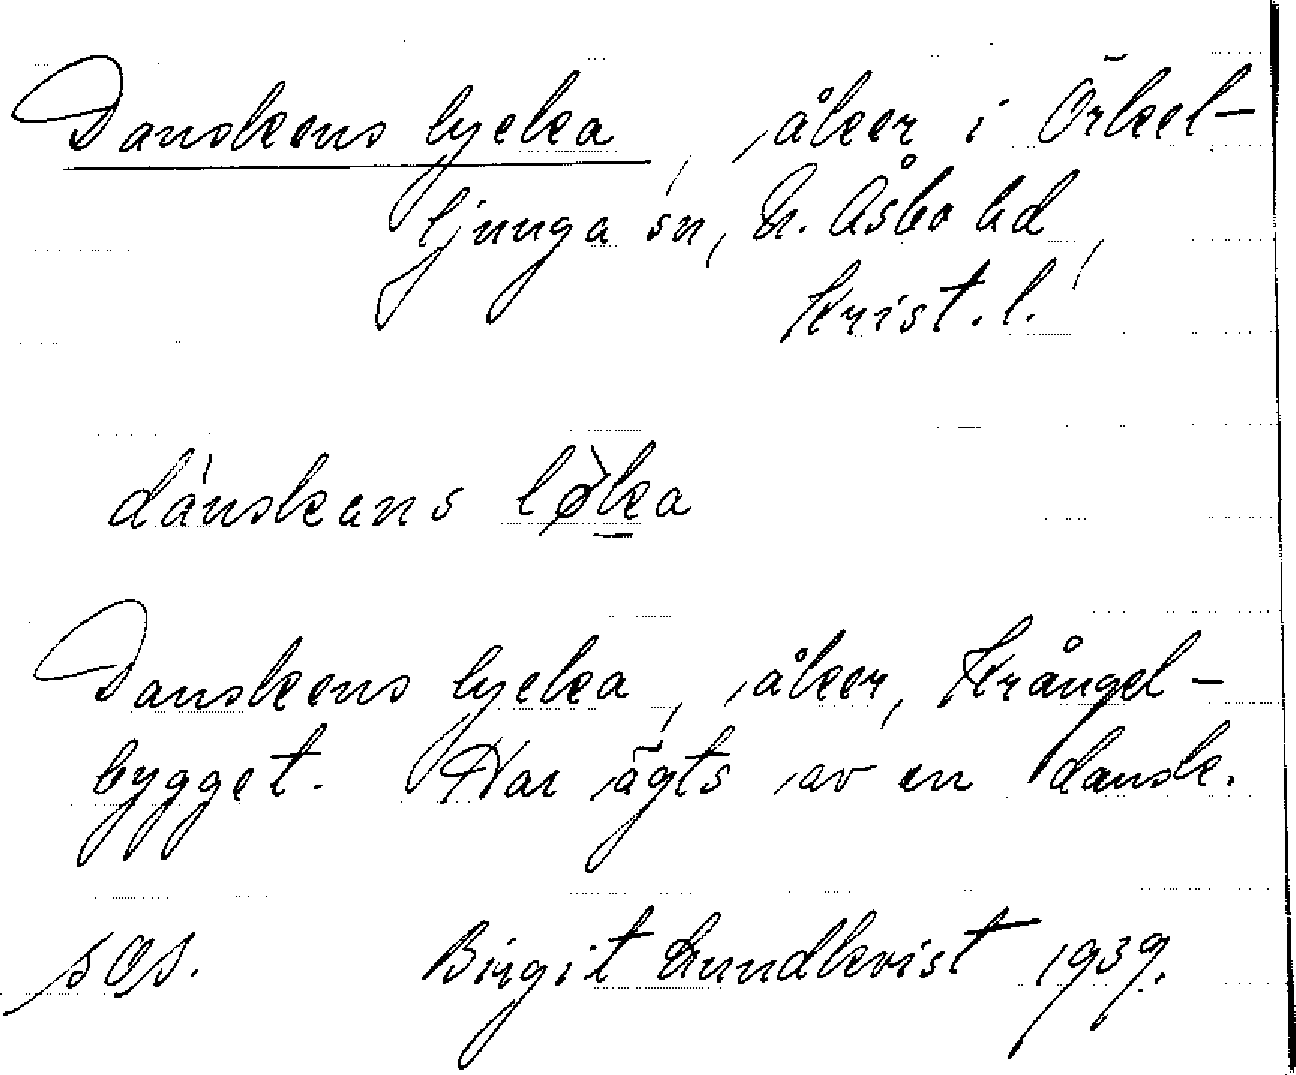 Danskens lycka, åker i Örkel-
ljunga sn, N. Åsbo hd,
Krist. l.
dánskans lø̀ka
Danskens lycka, åker, Krångel-
bygget. Har ägts av en dansk.
Birgit Lundkvist 1939.